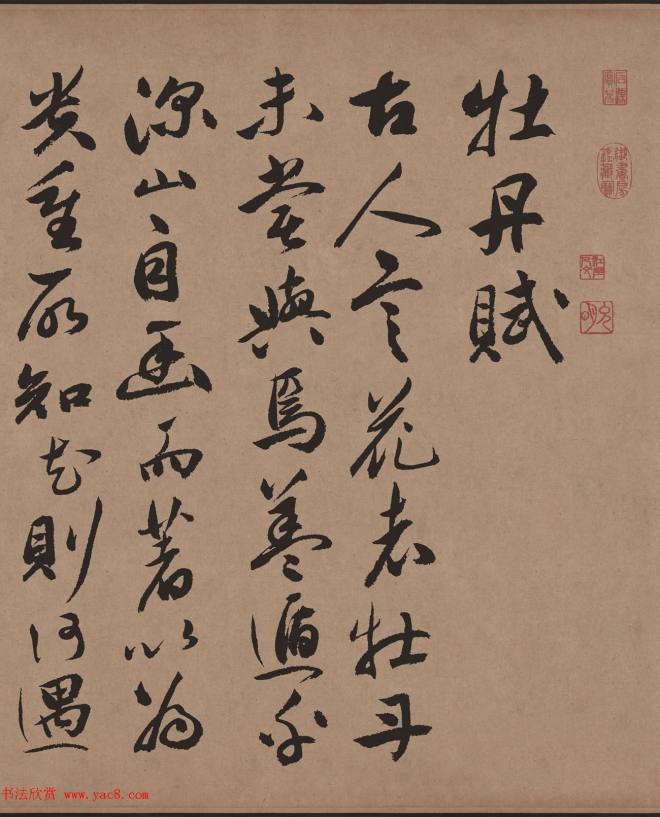 牡丹賦
古人言花者牡丹
未嘗與焉蓋遁乎
深山自幽而著以為
貴重所知花則何遇
书法欣赏 www.yac8.com